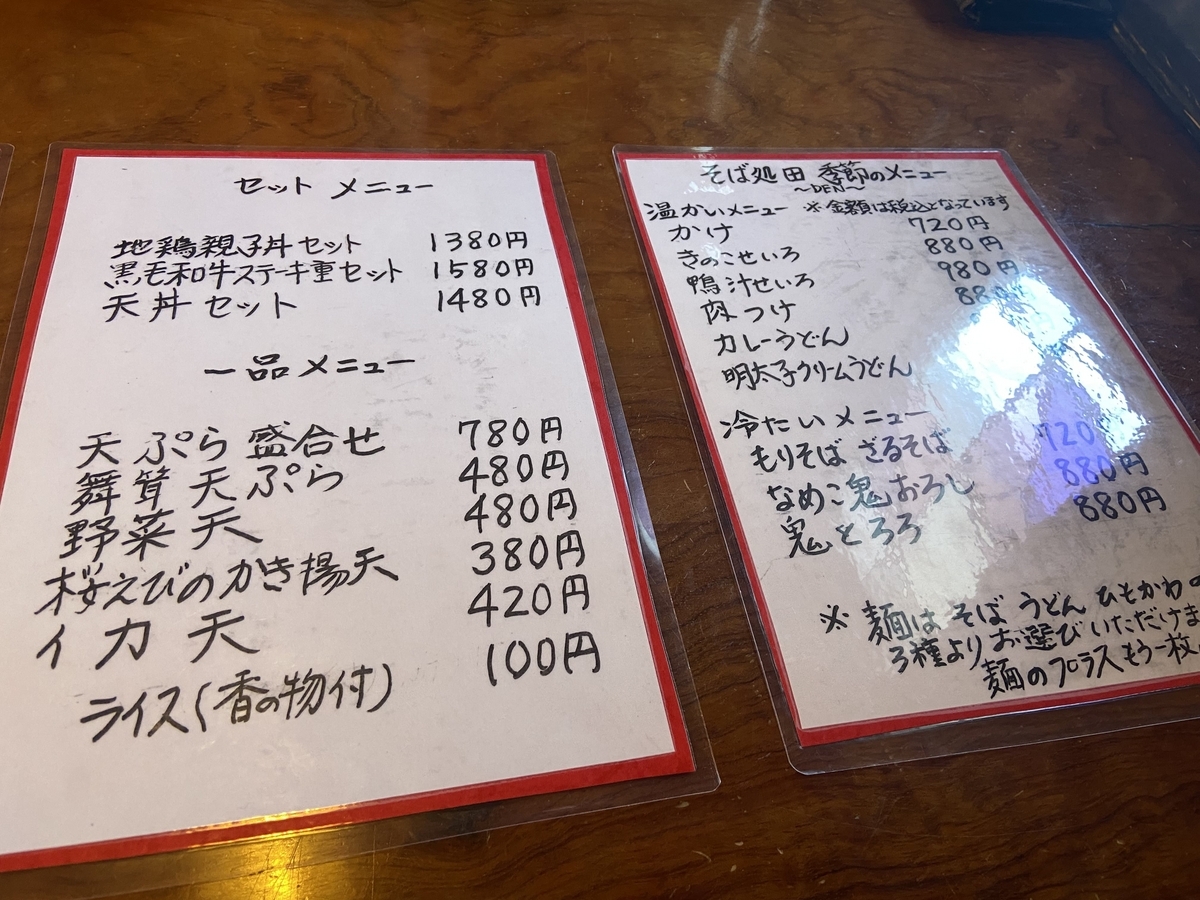 セット メニュー
地鶏親子丼セット 1380円
黒毛和牛ステーキ重セット 1580円
天丼セット 1480円
一品メニュー
天ぷら盛合せ 780円
舞茸天ぷら 480円
野菜天 480円
桜えびのかき揚天 380円
イカ天 420円
ライス(香の物付) 100円
そば処田 季節のメニュー
~DEN~
温かいメニュー ※金額は税込となっています
かけ 720円
きのこせいろ 880円
鴨汁せいろ 980円
肉つけ
カレーうどん
明太子クリームうどん
冷たいメニュー
もりそば ざるそば 720
なめこ鬼おろし 880円
鬼とろろ 880円
※ 麺は そば うどん ひもかわの
3種よりお選びいただけま
麺のプラスもう一枚